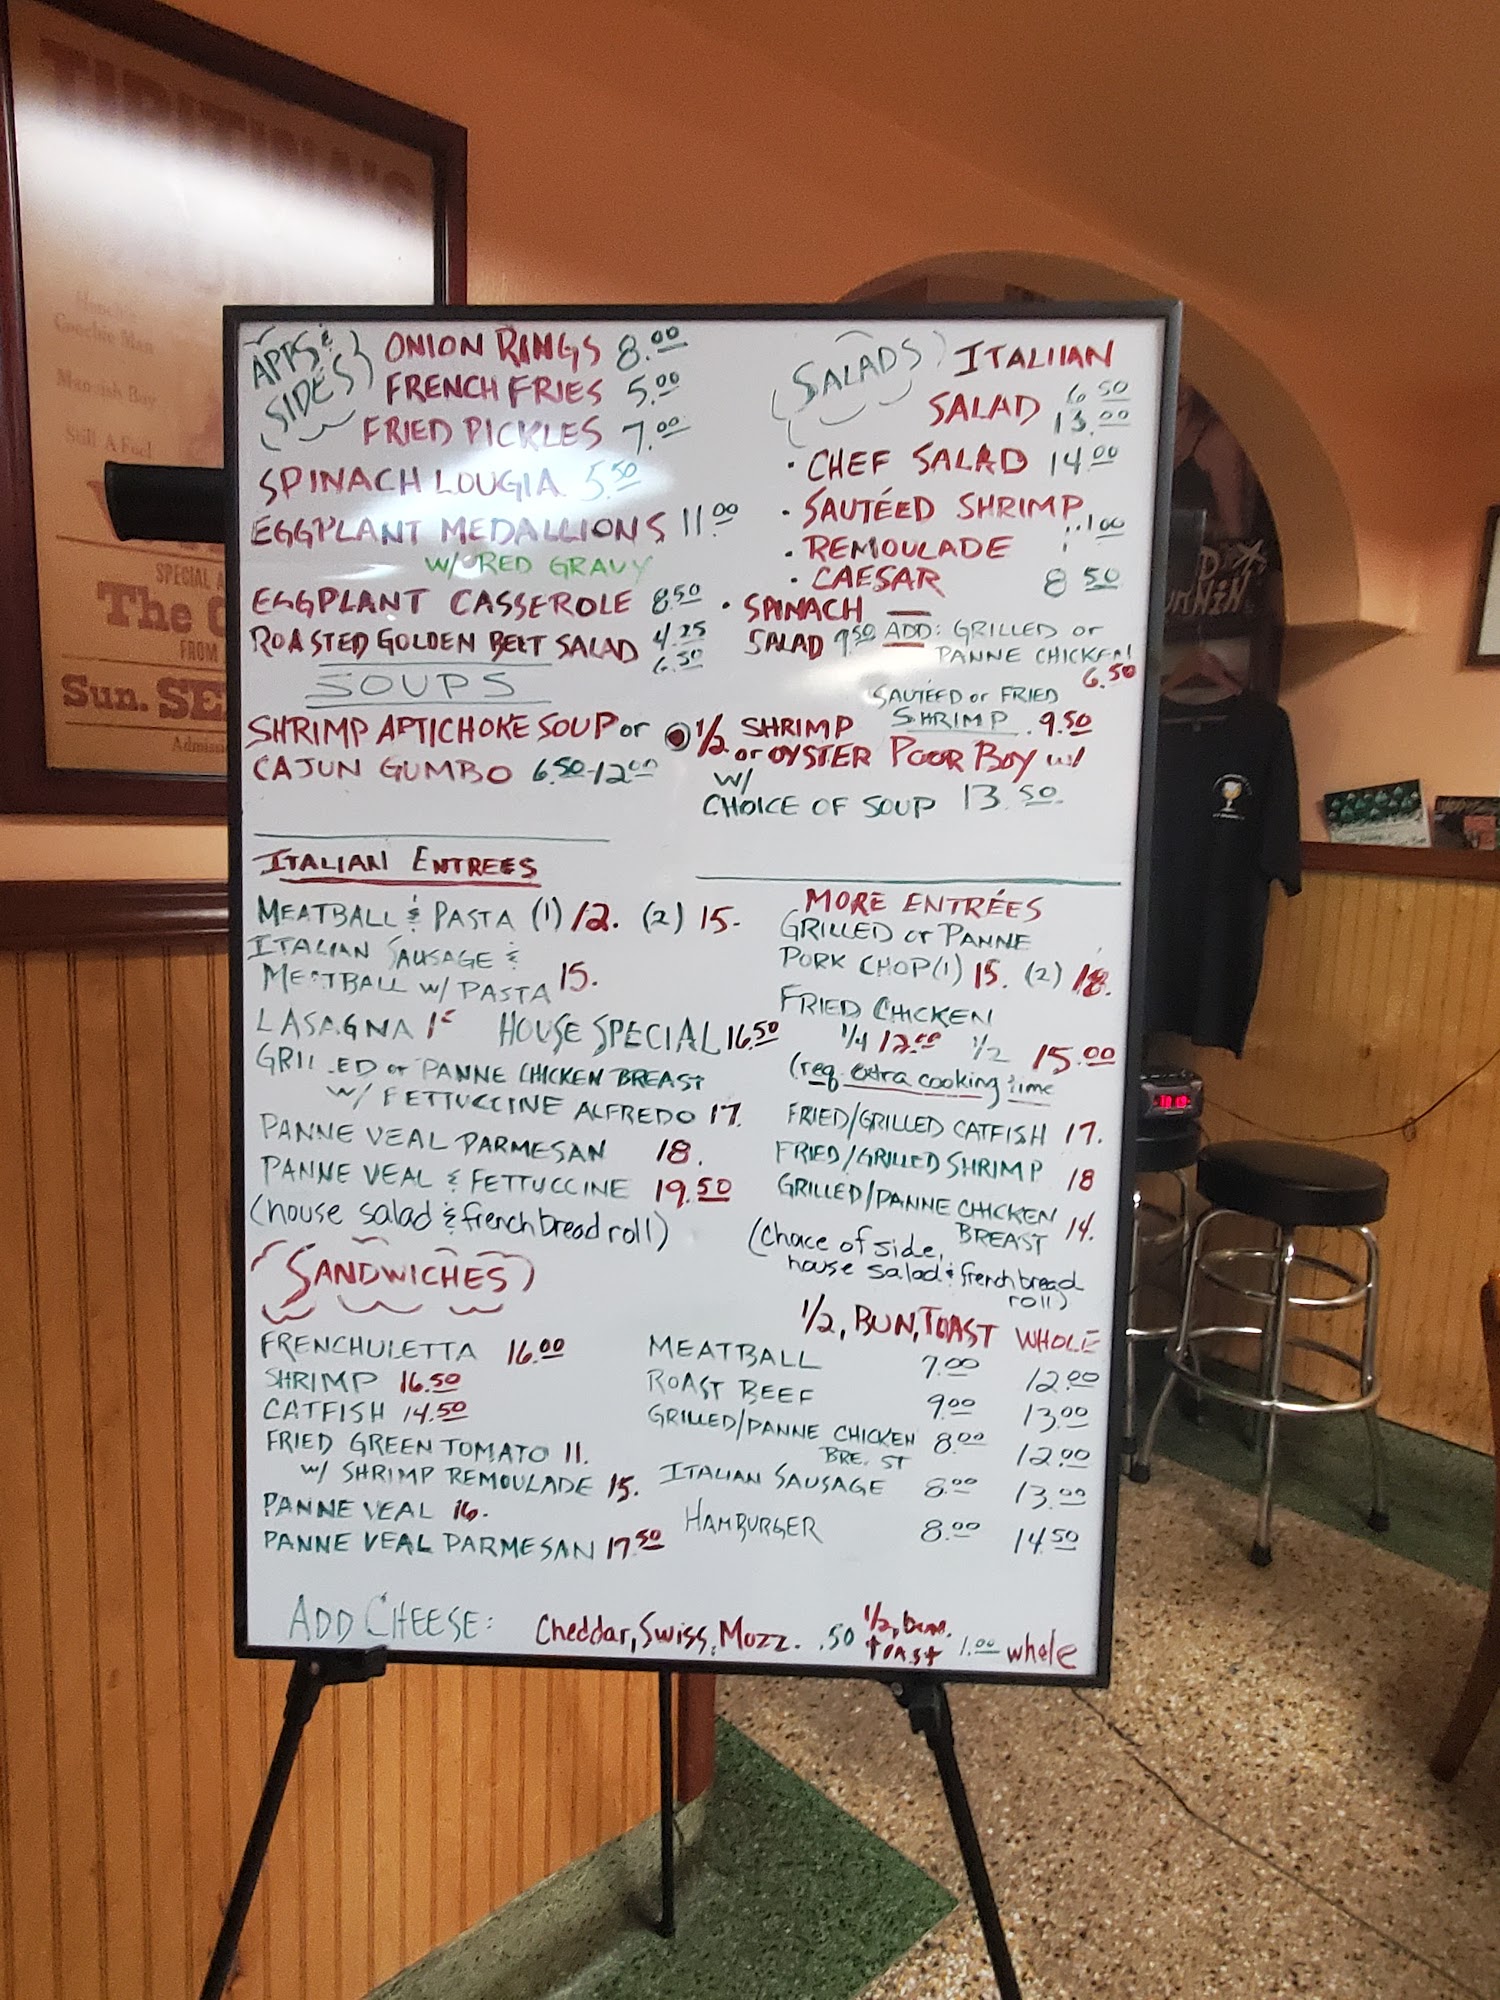 TIPITINA'S
Hoochie
Coochie Man
Mannish Boy
Still A Fool
SPECIAL
The
FROM
Sun.
APPS &
SIDES
ONION RINGS 8.00
FRENCH FRIES 5.00
FRIED PICKLES 7.00
SPINACH LOUGIA 5.50
EGGPLANT MEDALLIONS 11.00
W/ RED GRAVY
EGGPLANT CASSEROLE 8.50
ROASTED GOLDEN BEET SALAD 4.25
6.50
SOUPS
SHRIMP ARTICHOKE SOUP or
CAJUN GUMBO 6.50-12.00
SALADS
ITALIIAN
SALAD 6.50
13.00
· CHEF SALAD 14.00
· SAUTÉED SHRIMP
· REMOULADE
· CAESAR 8.50
· SPINACH
SALAD 9.50
ADD: GRILLED or
PANNE CHICKEN!
6.50
SAUTÉED or FRIED
SHRIMP. 9.50
1/2 SHRIMP
or OYSTER POOR BOY w/
W/
CHOICE OF SOUP 13.50
ITALIAN ENTREES
MEATBALL & PASTA (1) 12. (2) 15.
ITALIAN SAUSAGE &
MEATBALL W/ PASTA 15.
LASAGNA HOUSE SPECIAL 16.50
GRILLED or PANNE CHICKEN BREAST
W/ FETTUCCINE ALFREDO 17.
PANNE VEAL PARMESAN 18.
PANNE VEAL & FETTUCCINE 19.50
(house salad & french bread roll)
MORE ENTRÉES
GRILLED or PANNE
PORK CHOP (1) 15. (2) 18.
FRIED CHICKEN
1/4 12.00 1/2 15.00
(req. extra cooking time
FRIED/GRILLED CATFISH 17.
FRIED/GRILLED SHRIMP 18
GRILLED/PANNE CHICKEN
BREAST 14.
(choice of side,
house salad & french bread
roll)
SANDWICHES
FRENCHULETTA 16.00
SHRIMP 16.50
CATFISH 14.50
FRIED GREEN TOMATO 11.
W/ SHRIMP REMOULADE 15.
PANNE VEAL 16.
PANNE VEAL PARMESAN 17.50
1/2, BUN, TOAST WHOLE
MEATBALL 7.00 12.00
ROAST BEEF 9.00 13.00
GRILLED/PANNE CHICKEN 8.00 12.00
BREAST
ITALIAN SAUSAGE 8.00 13.00
HAMBURGER 8.00 14.50
ADD CHEESE: Cheddar, Swiss, Mozz. .50 1/2, bun,
toast 1.00 whole